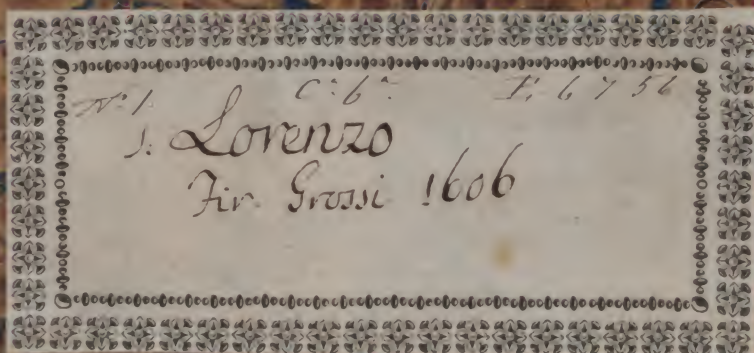 N.º 1. C.ª 6.ª I. 6 7 56
S. Lorenzo
Fir. Grossi 1606